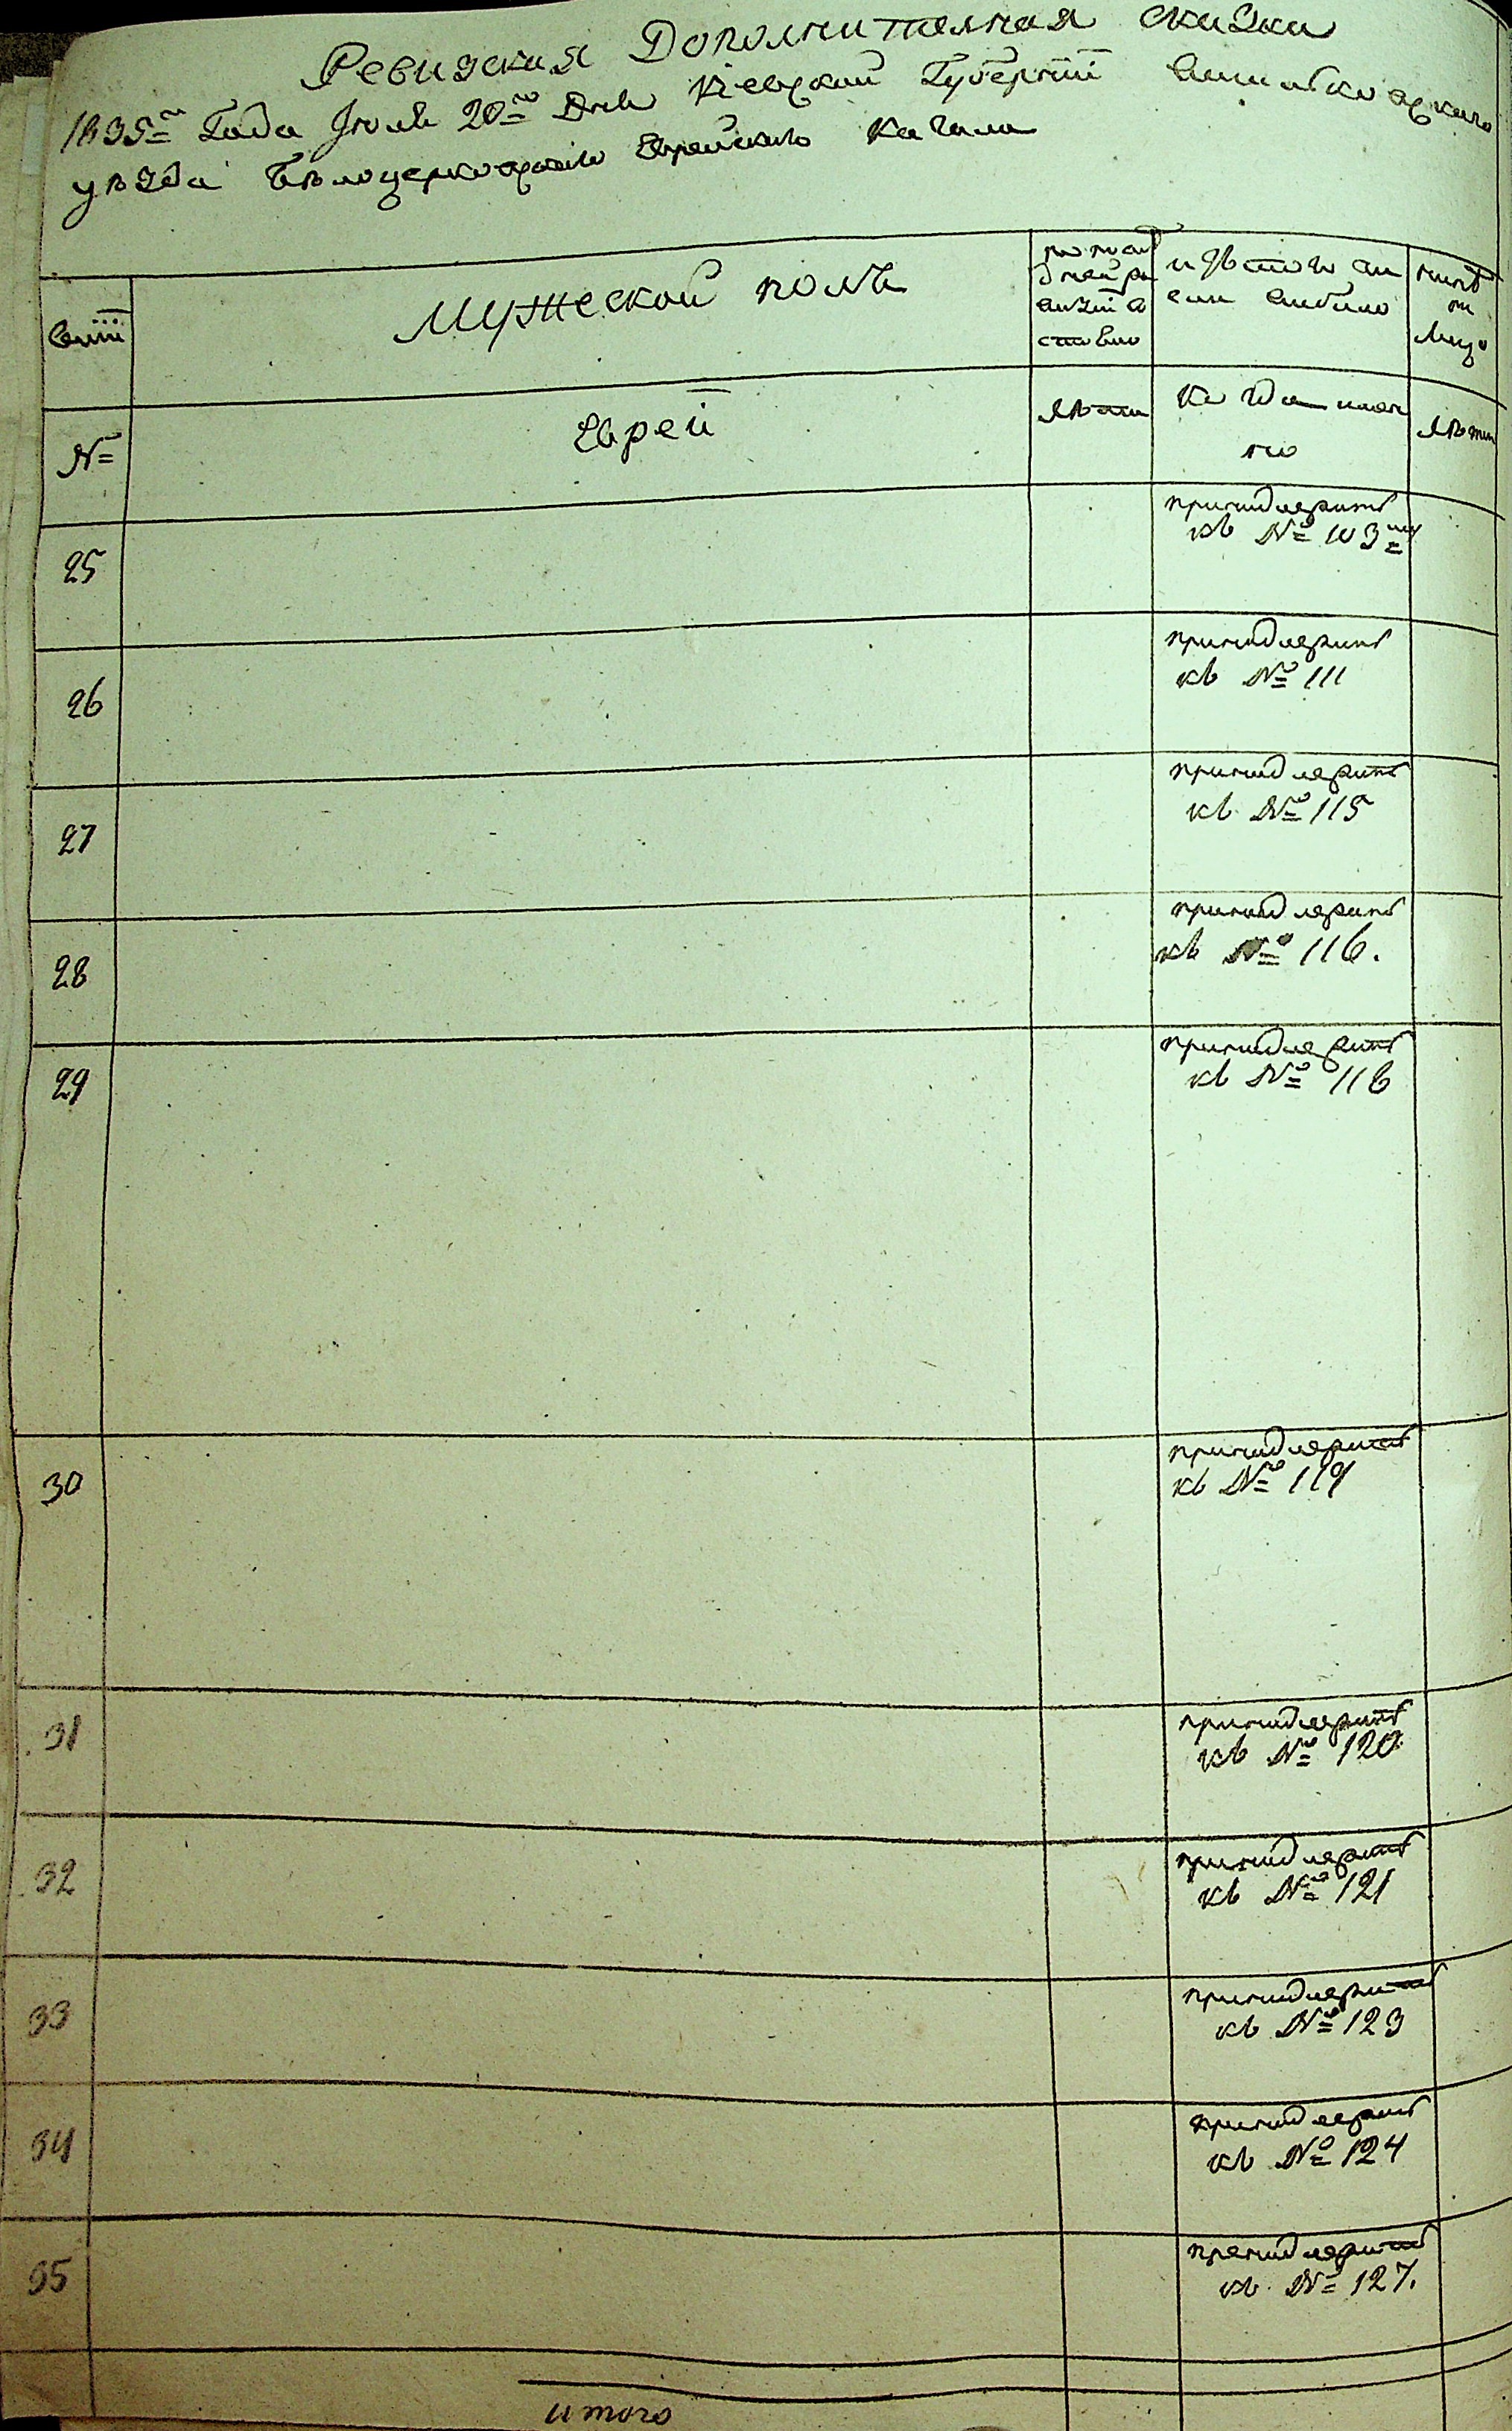 Ревизская Дополнителная сказка
1835го Года Июля 20го Дня Кіевской Губерніи Василковскаго
уѣзда Бѣлоцерковскаго Еврейскаго Кагала
Мужескои полъ
изъ того числа выбыло
Евреи
№
лѣта
Когда имян
но
лѣта
25
принадлежитъ
къ № 103му
26
принадлежитъ
къ № 111
27
принадлежитъ
къ № 115
28
принадлежитъ
къ № 116.
29
принадлежитъ
къ № 118
30
принадлежитъ
къ № 119
31
принадлежитъ
къ № 120
32
принадлежитъ
къ № 121
33
принадлежитъ
къ № 123
34
принадлежитъ
къ № 124
35
принадлежитъ
къ № 127.
итого